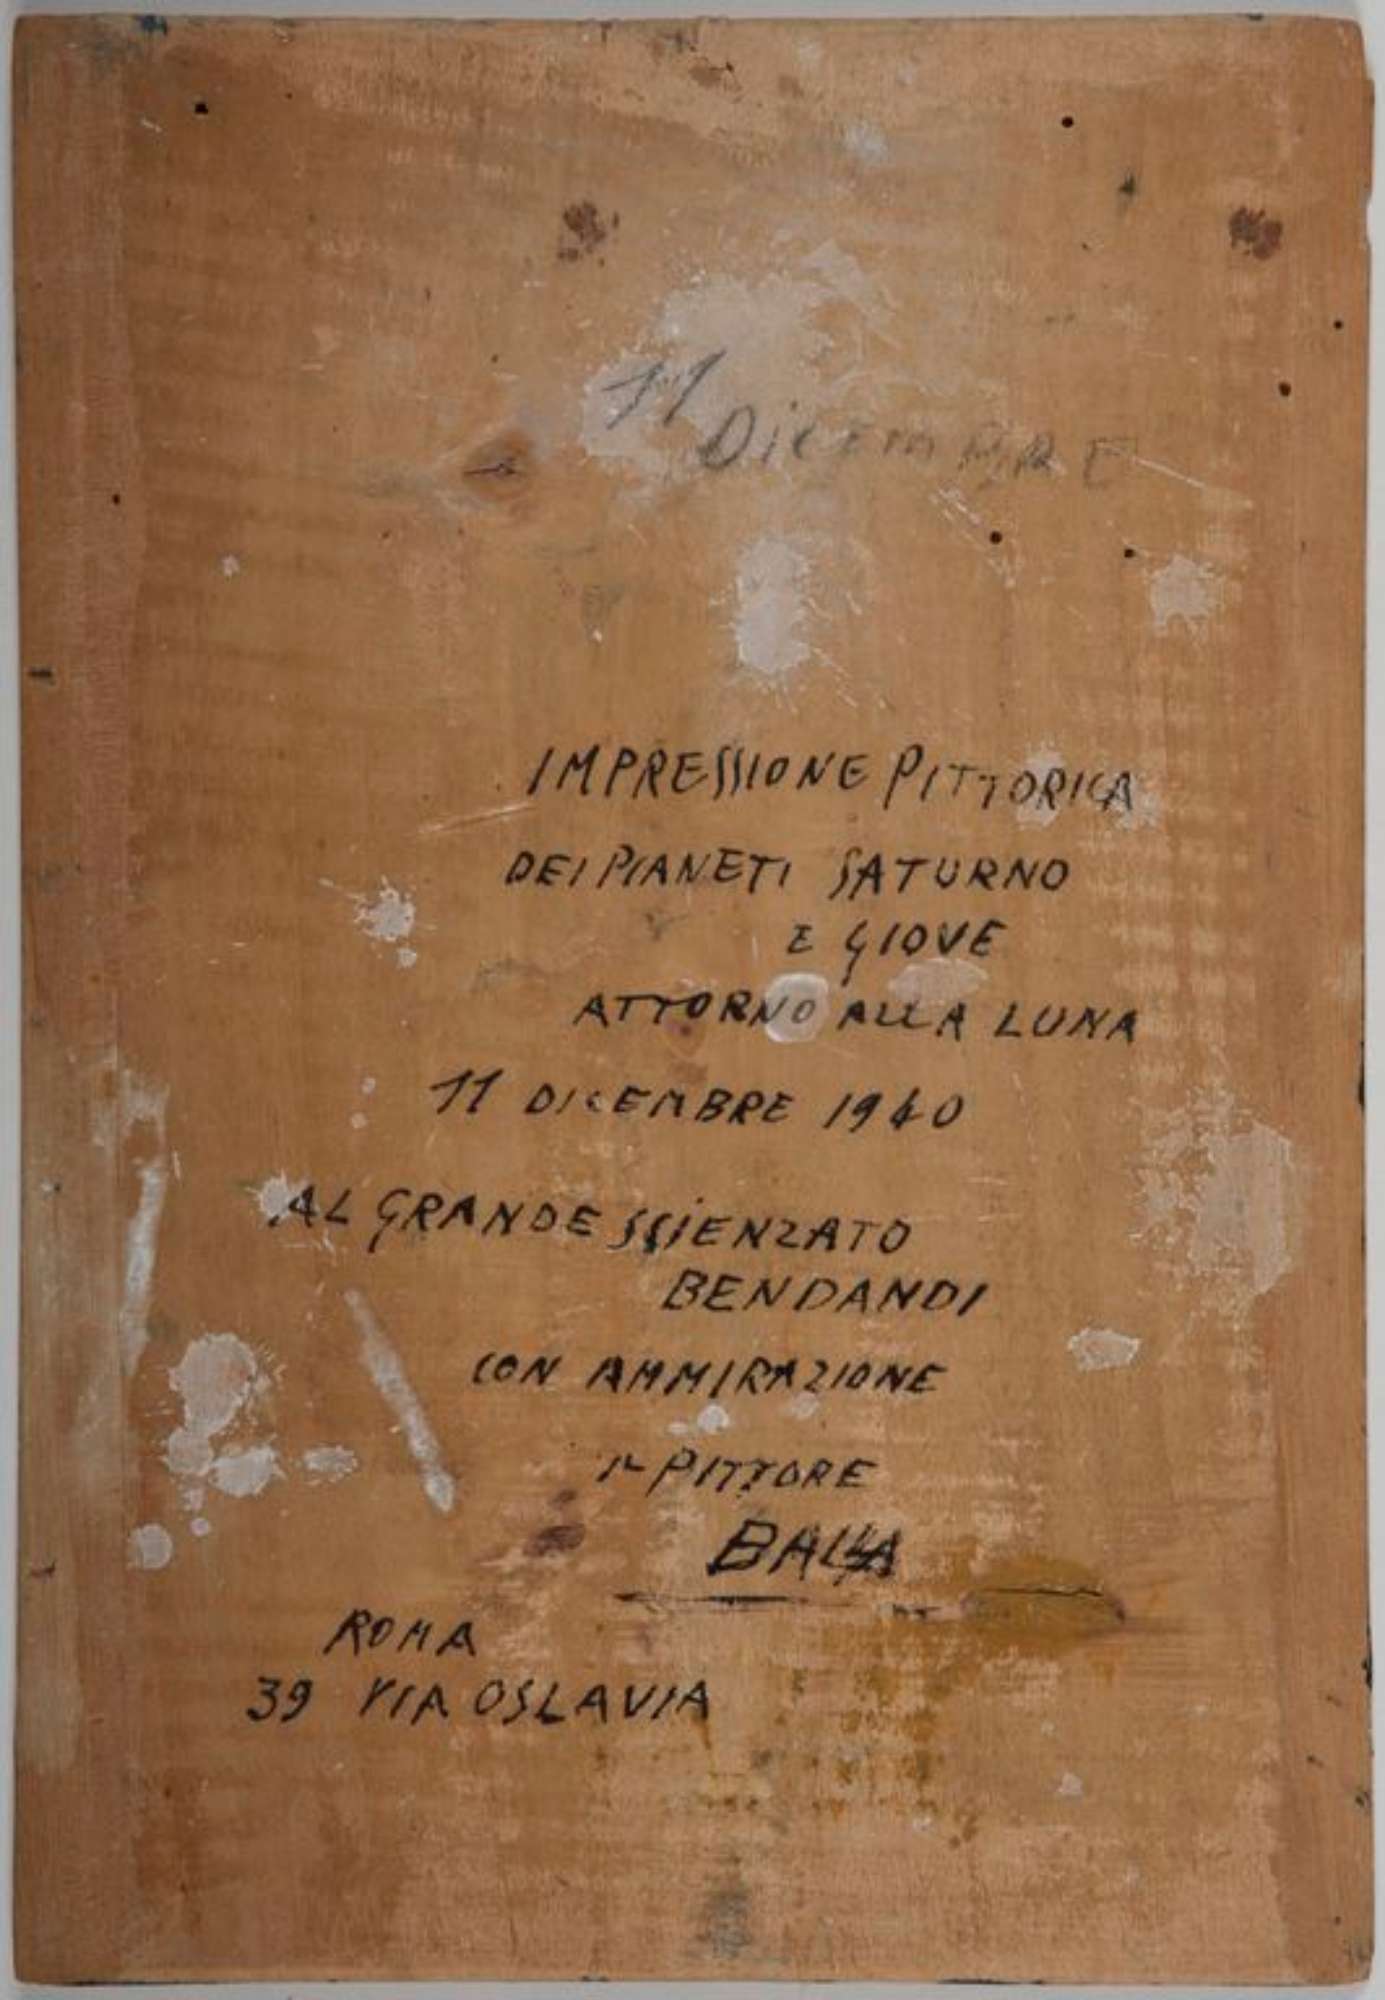 11
DiCEMBRE
IMPRESSIONE PITTORICA
DEI PIANETI SATURNO
E GIOVE
ATTORNO ALLA LUNA
11 DICEMBRE 1940
AL GRANDE SSiENZATO
BENDANDI
CON AMMIRAZIONE
IL PITTORE
BALLA
ROMA
39 VIA OSLAVIA